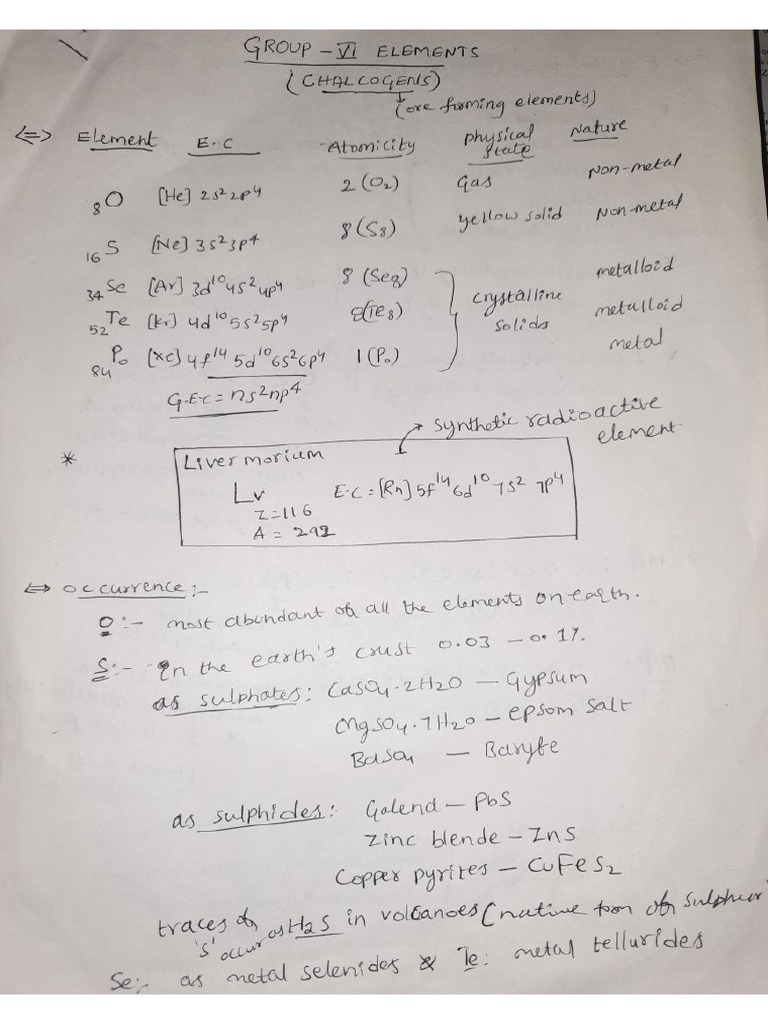 GROUP - VI ELEMENTS
(CHALCOGENS)
(ore forming elements)
<=> Element E.C Atomicity physical state Nature
8O [He] 2s²2p⁴ 2 (O₂) Gas Non-metal
16S [Ne] 3s²3p⁴ 8 (S₈) yellow solid Non-metal
34Se [Ar] 3d¹⁰4s²4p⁴ 8 (Se₈) metalloid
crystalline solids
52Te [Kr] 4d¹⁰5s²5p⁴ 8(Te₈) metalloid
84Po [Xe] 4f¹⁴ 5d¹⁰6s²6p⁴ 1 (Po) metal
G.E.C = ns²np⁴
→ synthetic radioactive element
* Livermorium
Lv E.C = [Rn] 5f¹⁴ 6d¹⁰ 7s² 7p⁴
Z=116
A = 292
<=> occurrence :-
O :- most abundant of all the elements on earth.
S :- In the earth's crust 0.03 - 0.1%.
as sulphates : CaSO₄.2H₂O - Gypsum
MgSO₄.7H₂O - epsom salt
BaSO₄ - Baryte
as sulphides : Galend - PbS
Zinc blende - ZnS
Copper pyrites - CuFeS₂
traces of 'S' occur as H₂S in volcanoes (native form of sulphur
Se:- as metal selenides & Te: metal tellurides